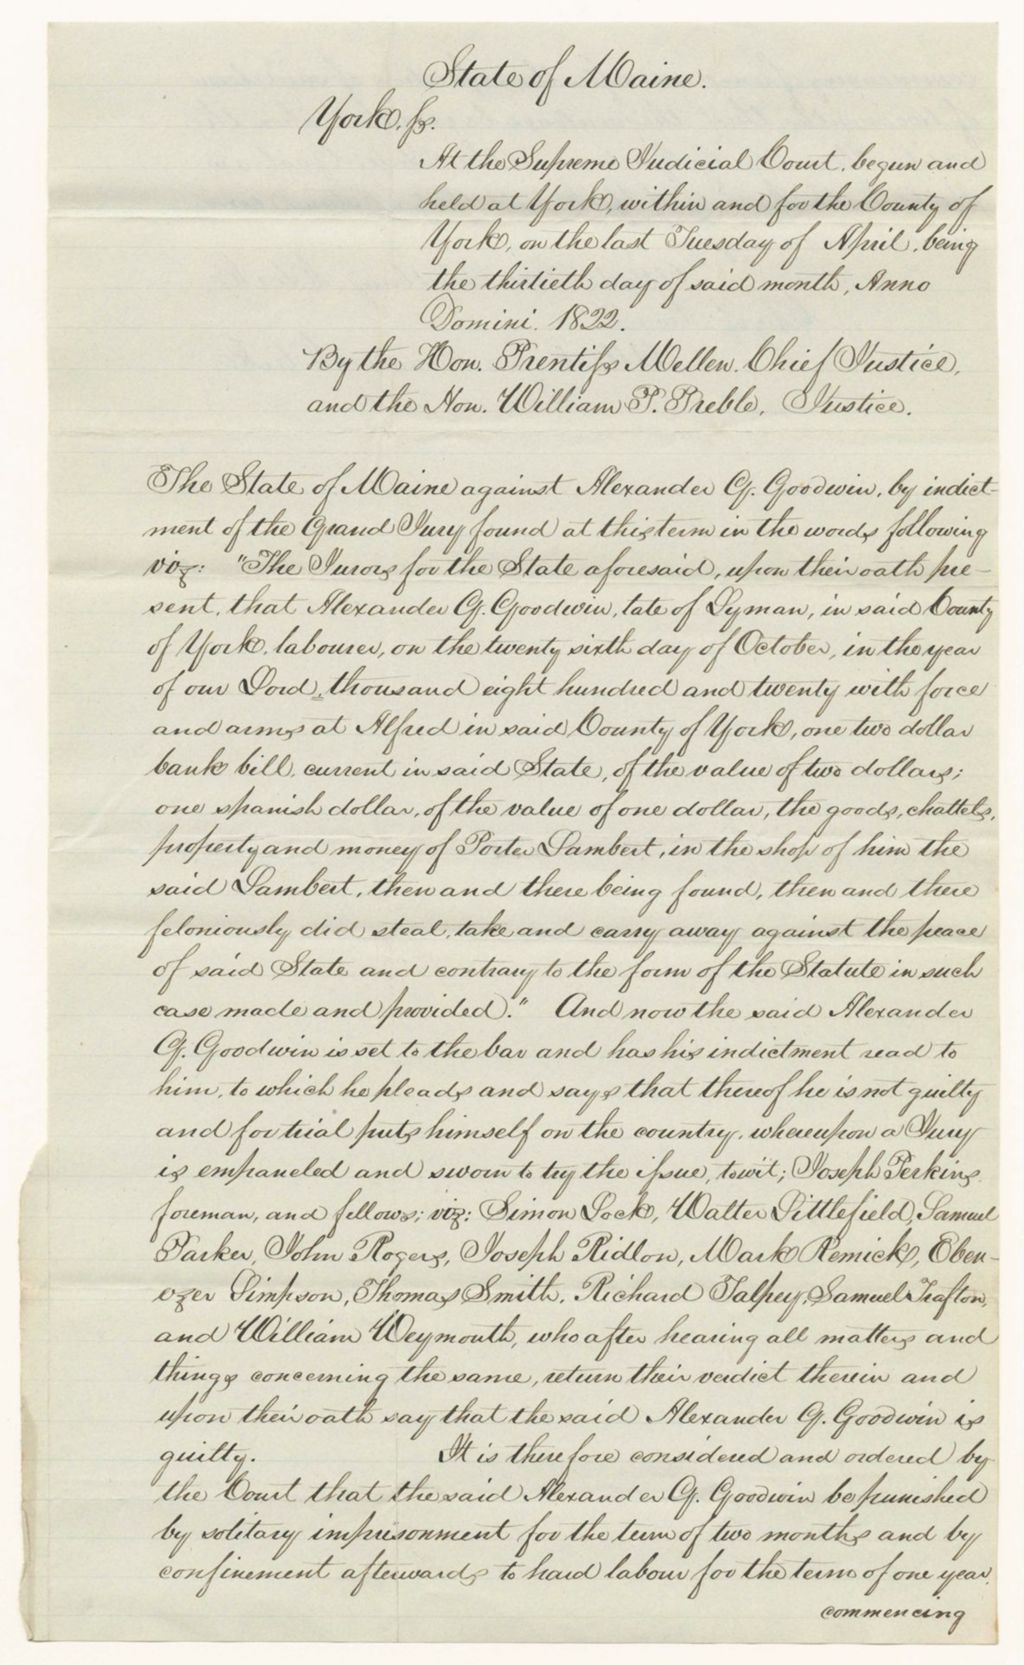 State of Maine.
York. ss.
At the Supreme Judicial Court, begun and
held at York, within and for the County of
York, on the last Tuesday of April, being
the thirtieth day of said month, Anno
Domini. 1822.
By the Hon. Prentiss Mellen. Chief Justice,
and the Hon. William P. Preble, Justice.
The State of Maine against Alexander G. Goodwin, by indict-
ment of the Grand Jury found at this term in the words following
viz: "The Jurors for the State aforesaid, upon their oath pre-
sent, that Alexander G. Goodwin, late of Lyman, in said County
of York, labourer, on the twenty sixth day of October, in the year
of our Lord, thousand eight hundred and twenty with force
and arms at Alfred in said County of York, one two dollar
bank bill, current in said State, of the value of two dollars;
one spanish dollar, of the value of one dollar, the goods, chattels,
property and money of Porter Lambert, in the shop of him the
said Lambert, then and there being found, then and there
feloniously did steal, take and carry away against the peace
of said State and contrary to the form of the Statute in such
case made and provided." And now the said Alexander
G. Goodwin is set to the bar and has his indictment read to
him, to which he pleads and says that thereof he is not guilty
and for trial puts himself on the country, whereupon a Jury
is empaneled and sworn to try the issue, towit; Joseph Perkins
foreman, and fellows; viz: Simon Lock, Walter Littlefield, Samuel
Parker, John Rogers, Joseph Ridlon, Mark Remick, Eben-
ezer Simpson, Thomas Smith, Richard Talpey, Samuel Trafton,
and William Weymouth, who after hearing all matters and
things concerning the same, return their verdict therein and
upon their oath say that the said Alexander G. Goodwin is
guilty. It is therefore considered and ordered by
the Court that the said Alexander G. Goodwin be punished
by solitary imprisonment for the term of two months and by
confinement afterwards to hard labour for the term of one year,
commencing